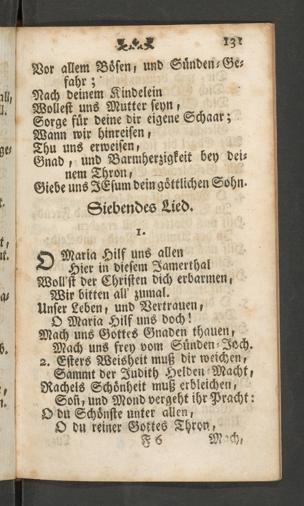 131
Vor allem Bösen, und Sünden-Ge-
fahr;
Nach deinem Kindelein
Wollest uns Mutter seyn,
Sorge für deine dir eigene Schaar;
Wann wir hinreisen,
Thu uns erweisen,
Gnad, und Barmherzigkeit bey dei-
nem Thron,
Giebe uns JEsum dein göttlichen Sohn.
Siebendes Lied.
1.
O Maria Hilf uns allen
Hier in diesem Jamerthal
Woll'st der Christen dich erbarmen,
Wir bitten all' zumal.
Unser Leben, und Vertrauen,
O Maria Hilf uns doch!
Mach uns Gottes Gnaden thauen,
Mach uns frey vom Sünden-Joch.
2. Esters Weisheit muß dir weichen,
Sammt der Judith Helden-Macht,
Rachels Schönheit muß erbleichen,
Soñ, und Mond vergeht ihr Pracht:
O du Schönste unter allen,
O du reiner Gottes Thron,
F 6 Mach,